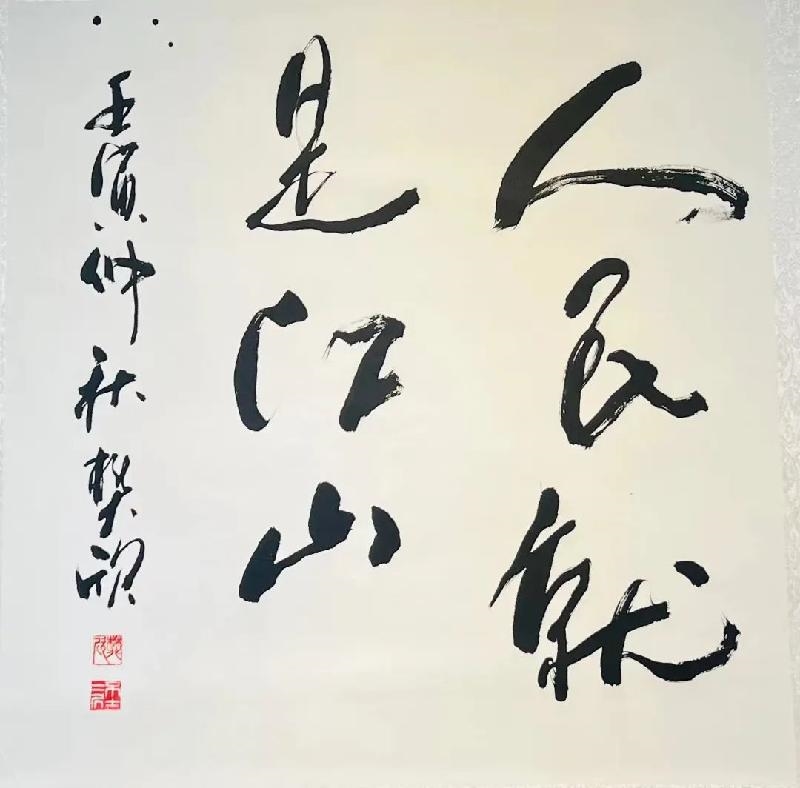 人民就
是江山
壬寅仲秋樊